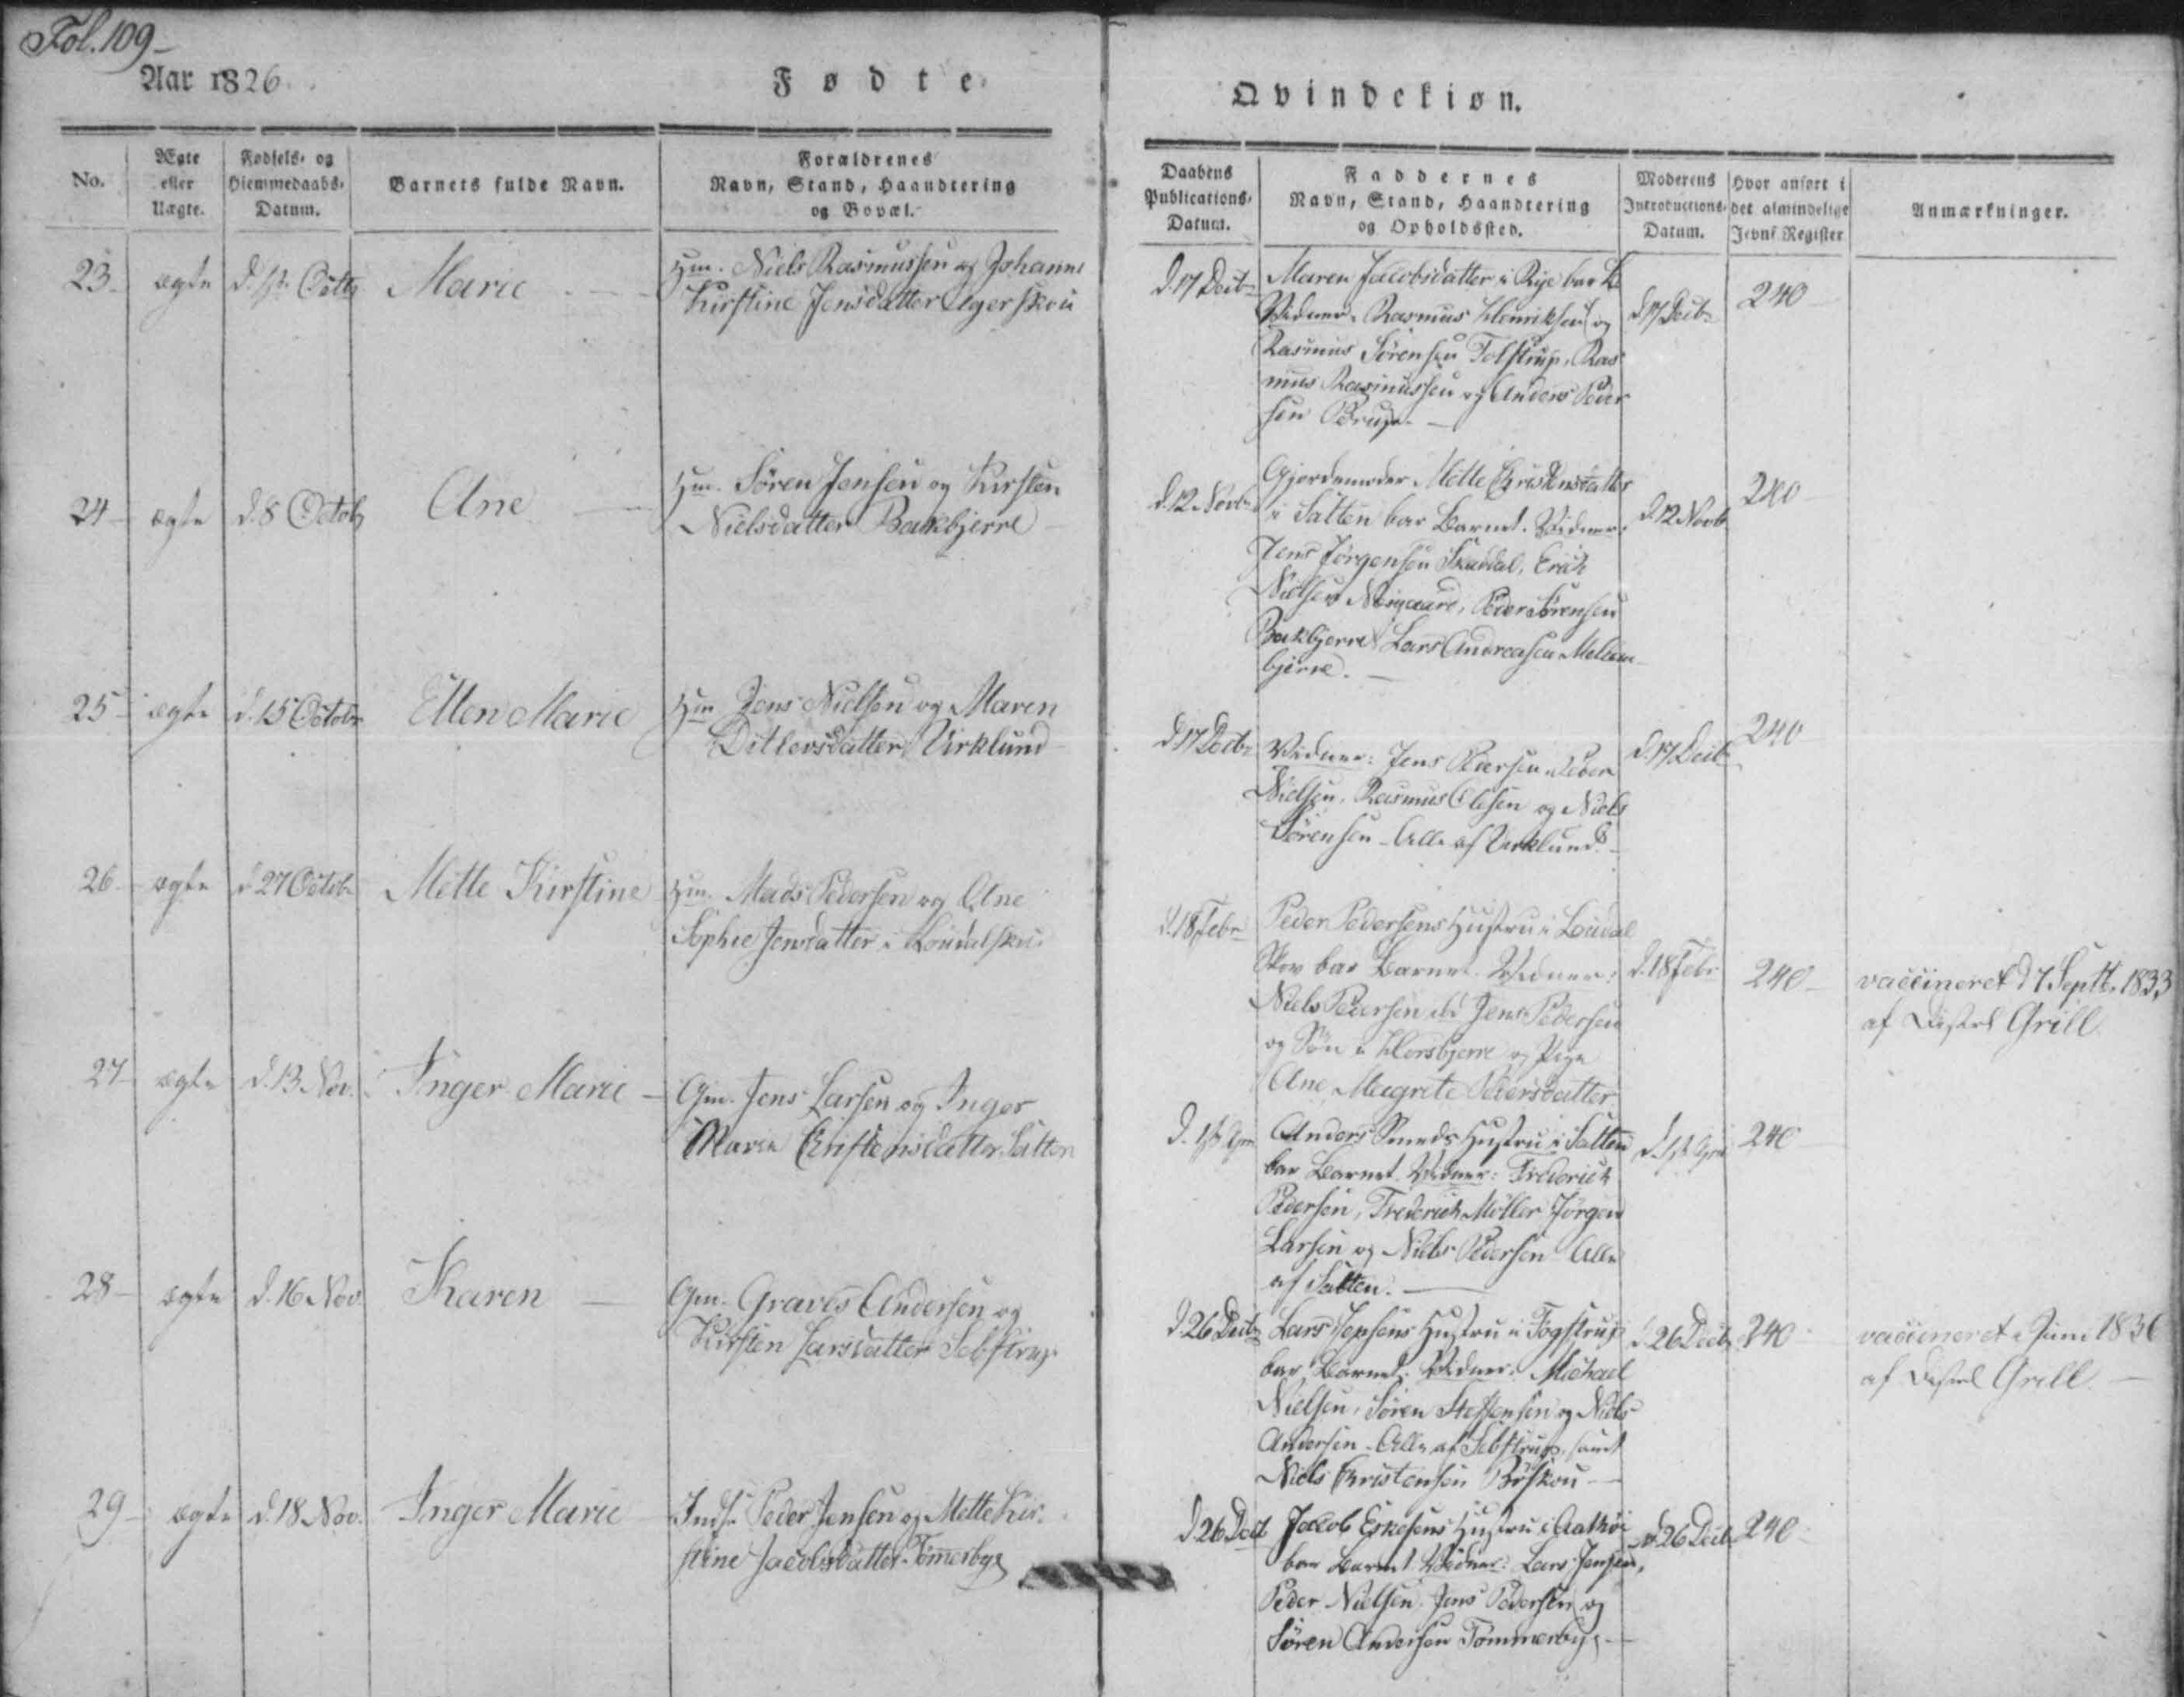 Fol. 109
Aar 1826.
Fødte
Qvindekiøn.
No.
Ægte
eller
Uægte.
Fødsels- og
Hiemmedaabs-
Datum.
Barnets fulde Navn.
Forældrenes
Navn, Stand, Haandtering
og Bopæl.
Daabens
Publications-
Datum.
Faddernes
Navn, Stand, Haandtering
og Opholdssted.
Moderens
Introductions-
Datum.
Hvor anført i
det almindelige
Jevnf. Register
Anmærkninger.
23
ægte
Marie
Hm. Niels Rasmussen og Johanne
Kirstine Jensdatter Agerskou
d. 17 Decbr
Maren Jacobsdatter i Rye bar
Vidner. Rasmus Henriksen og
Rasmus Sørensen Tolstrup, Ras
mus Rasmussen og Anders Peder
sen Brup.
d. 17 Decbr
240
24
ægte
d. 8 Octob
Ane
Hm. Søren Jensen og Kirsten
Nielsdatter Bakbjerre
d. 12 Novbr
Gjordemoder Mette Christensdatter
i Salten bar Barnet. Vidner:
Jens Jørgensen Skaddal, Erick
Nielsen Nörgaard, Peder Sørensen
Bakbjerre Lars Andreasen Mellem
bjerre.
d. 12 Novb
240
25
ægte
d. 15 Octobr
Ellen Marie
Hm Jens Nielsen og Maren
Ditlevsdatter, Virklund
d 17 Decbr
Vidner: Jens Pedersen, Peder
Nielsen, Rasmus Olesen og Niels
Sørensen - Alle af Virklund.
d. 17 Decb
240
26
ægte
d 27 Octob
Mette Kirstine
Hm. Mads Pedersen og Ane
Sophie Jensdatter i Loudalskou
d. 18 Febr
Peder Pedersens Hustru i Loudal
Skov bar Barnet. Vidner:
Niels Pedersen Jens Pedersen
og Søn i Horsbjerre og Pige
Ane Magrete Pedersdatter
d. 18 Febr
240
vaccineret d 7 Septb. 1833
af Distrl Grill
27
ægte
d. 13 Nov.
Inger Marie
Gm. Jens Larsen og Inger
Marie Christensdatter Salten
Anders Smeds Hustru i Salten
bar Barnet. Vidner: Frederick
Pedersen, Frederich Møller Jørgen
Larsen og Niels Pedersen Alle
af Salten.
240
28
ægte
d. 16 Nov
Karen
Gm. Graves Andersen og
Kirsten Larsdatter Sebstrup
d. 26 Decb
Lars Jepsens Hustru i Fogstrup
bar Barnet. Vidner: Michael
Nielsen, Søren Steffensen og Niels
Andersen - Alle af Sebstrup, samt
Niels Christensen Böskou
d 26 Decb
240
vaccineret i Juni 1836
af Distrl Grill
29
ægte
d. 18 Nov.
Inger Marie
Inds. Peder Jensen og Mette Kir-
stine Jacobsdatter Tømmerbye
d 26 Decb
Jacob Eskesens Hustru i
bar Barnet Vidner: Lars Jensen,
Peder Nielsen. Jens Pedersen og
Søren Andersen Tømmerbye
d 26 Decb
240